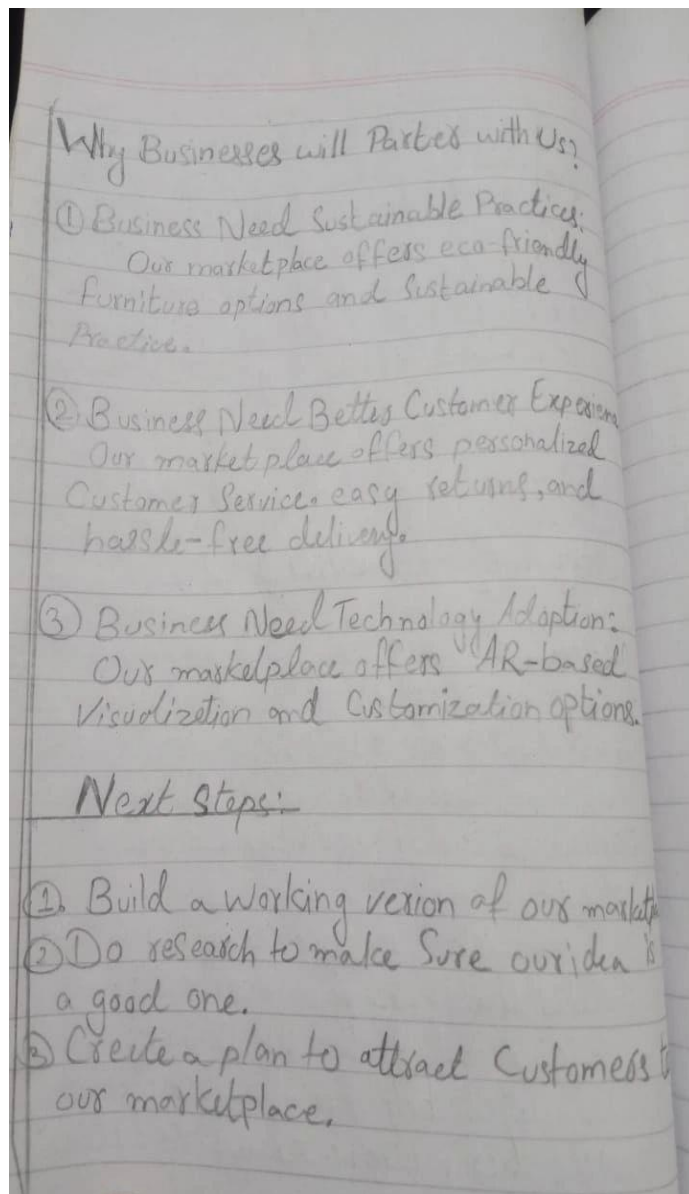 Why Businesses will Parter with Us?
① Business Need Sustainable Practices:
Our marketplace offers eco-friendly
furniture options and Sustainable
Practice.
② Business Need Better Customer Experienc
Our marketplace offers personalized
Customer Service. easy returns, and
hassle-free delivery.
③ Business Need Technology Adoption:
Our marketplace offers AR-based
Visualization and Customization options.
Next Steps:-
①. Build a working verion of our marketp
② Do research to make Sure our idea is
a good one.
③ Create a plan to attract Customers t
our marketplace.